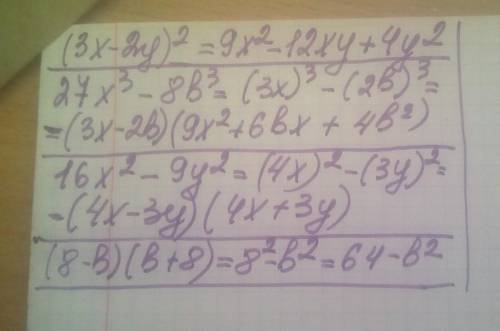 (3x-2y)² = 9x²-12xy+4y²
27x³ - 8b³ = (3x)³ - (2b)³ =
= (3x-2b)(9x²+6bx + 4b²)
16x² - 9y² = (4x)² - (3y)² =
= (4x-3y)(4x+3y)
(8-b)(b+8) = 8²-b² = 64-b²